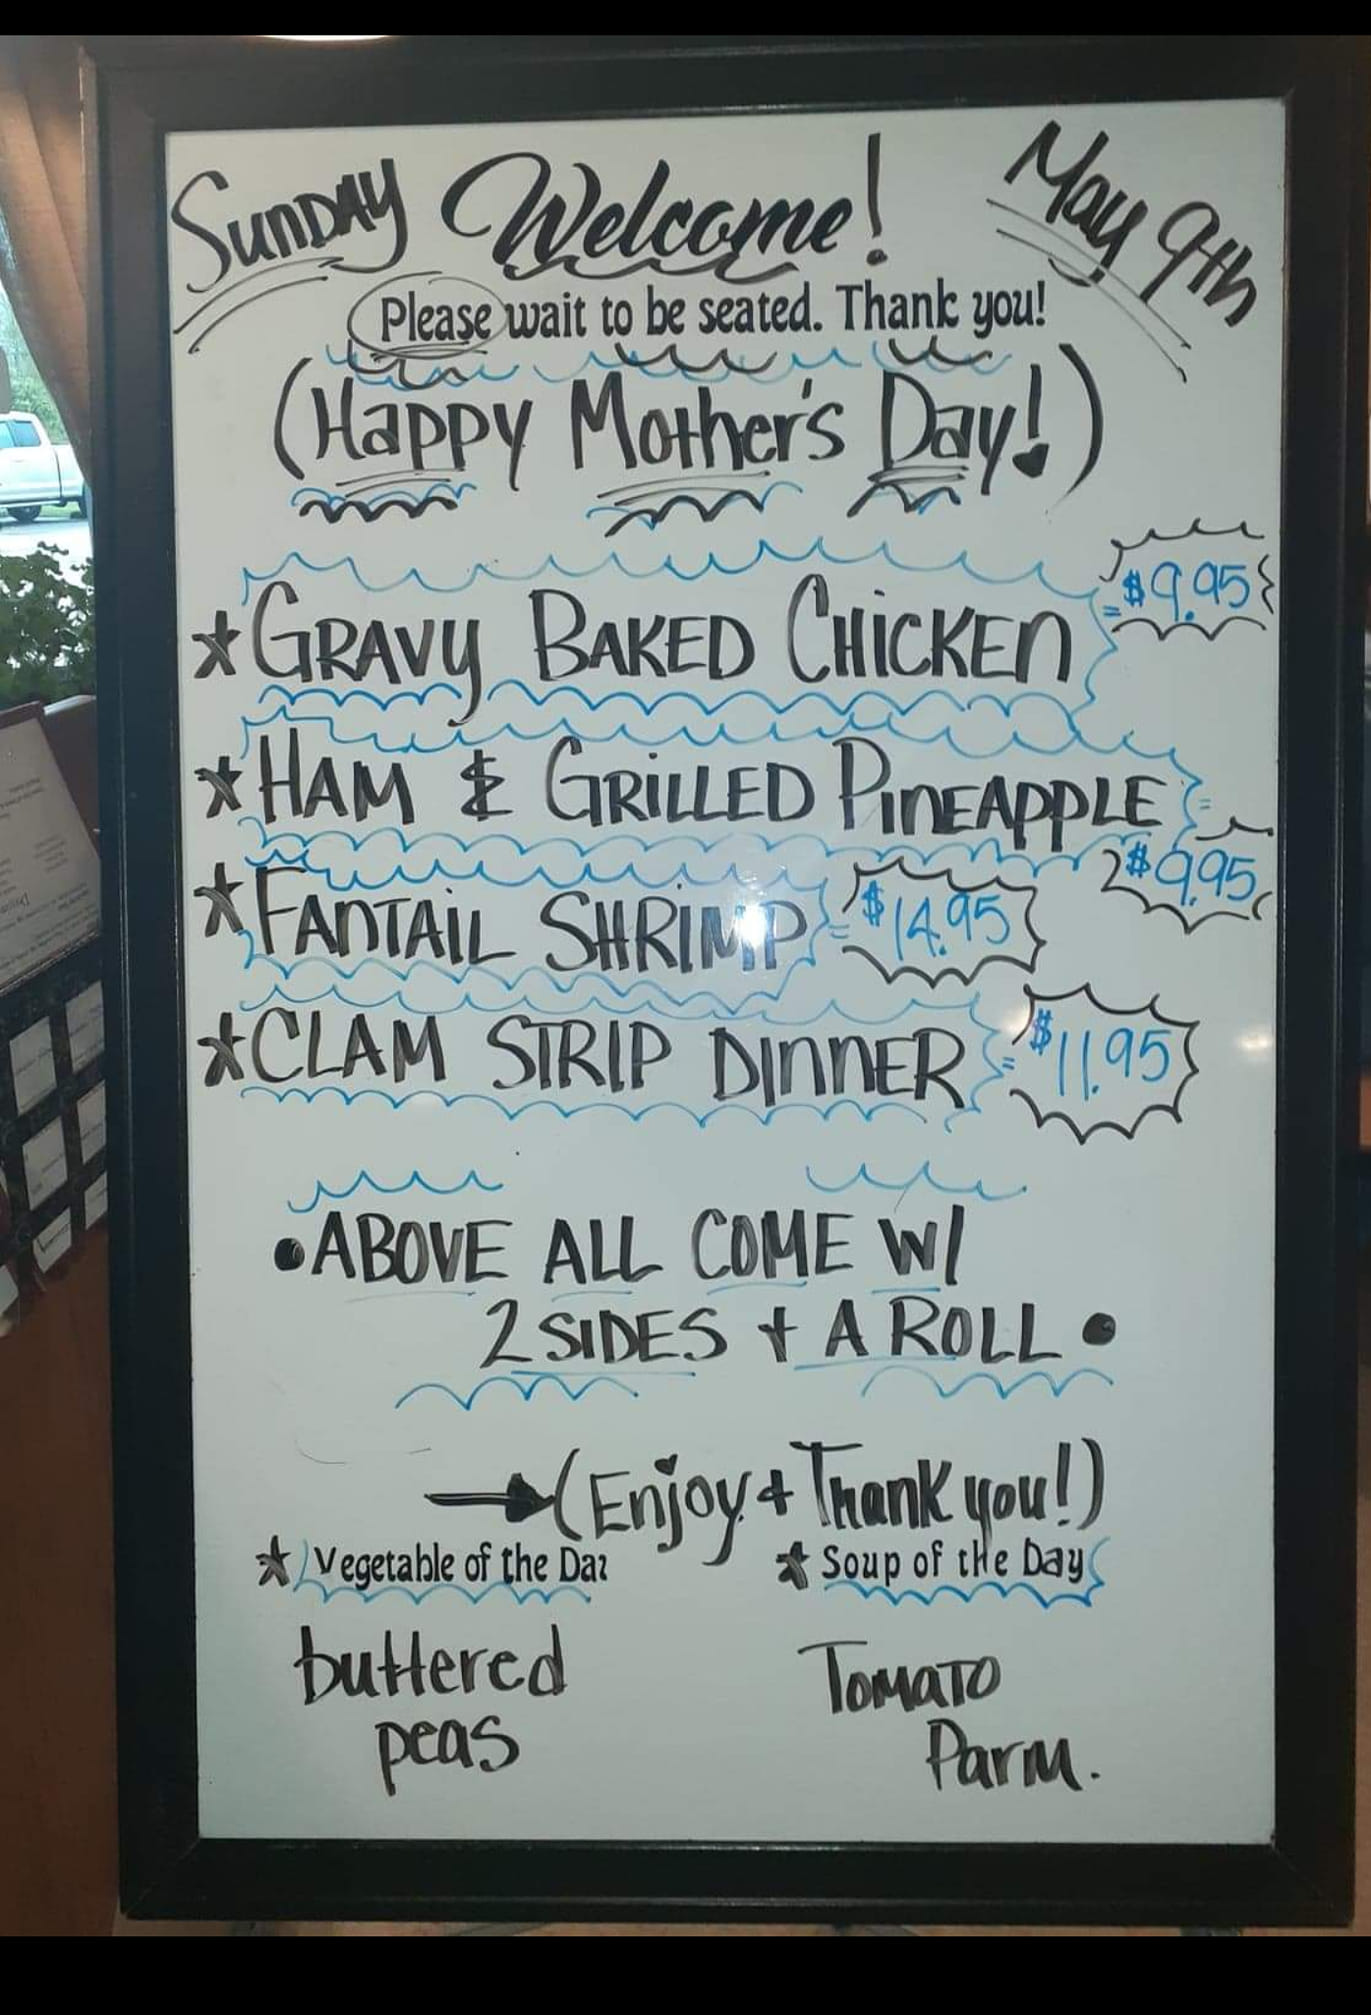 Sunday Welcome! May 9th
Please wait to be seated. Thank you!
(Happy Mother's Day!)
★ GRAVY BAKED CHICKEN = $9.95
★ HAM & GRILLED PINEAPPLE = $9.95
★ FANTAIL SHRIMP = $14.95
★ CLAM STRIP DINNER = $11.95
• ABOVE ALL COME W/
2 SIDES + A ROLL •
→ (Enjoy + Thank you!)
★ Vegetable of the Da ★ Soup of the Day
buttered Tomato
peas Parm.